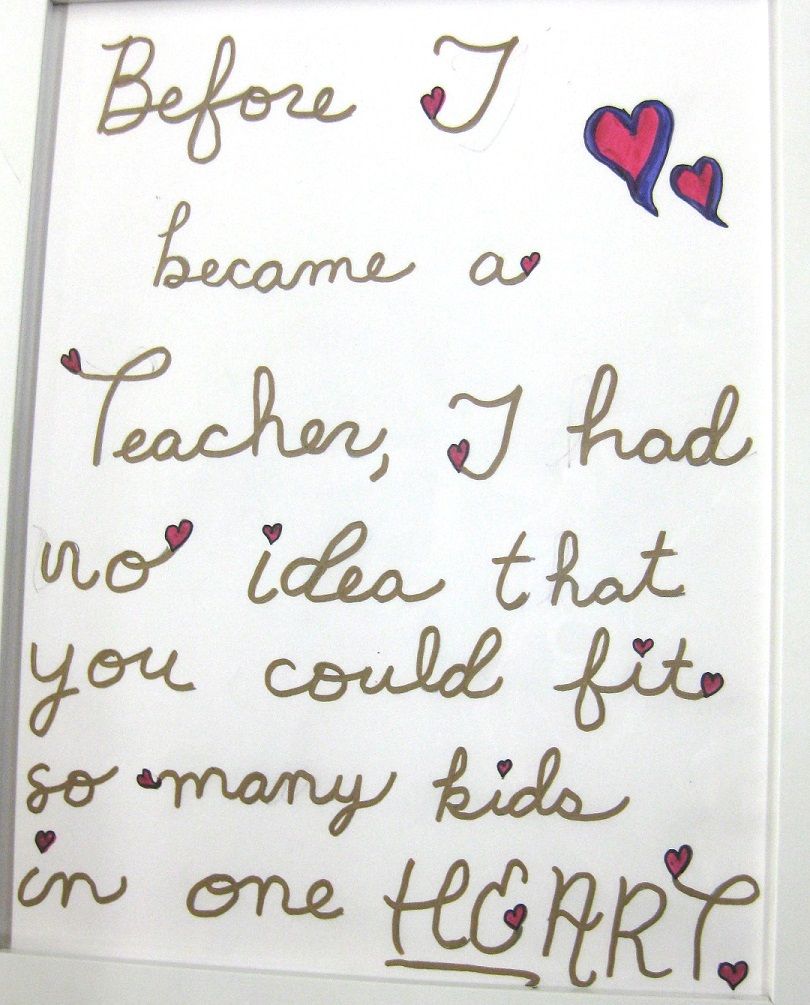 Before I
became a
Teacher, I had
no idea that
you could fit
so many kids
in one HEART.